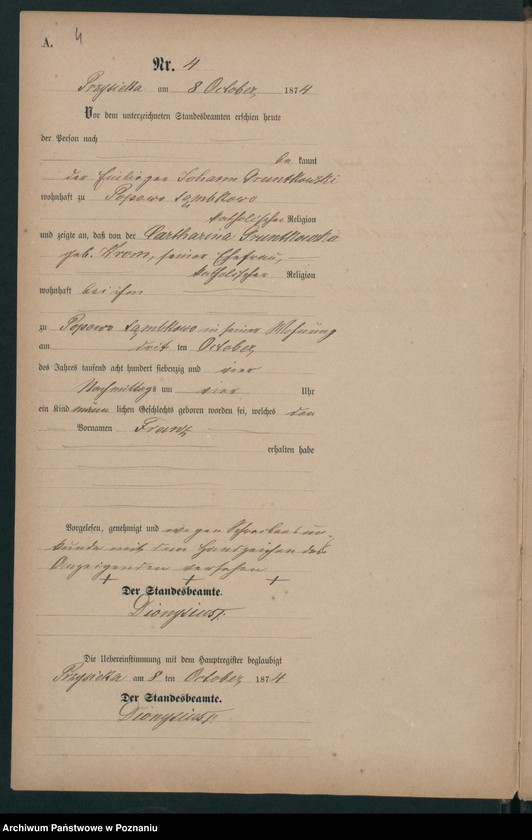 A. 4
Nr. 4
Przysieka am 8 October, 1874
Vor dem unterzeichneten Standesbeamten erschien heute
der Person nach
be kannt
der Johann Gruntkowski
wohnhaft zu Popowo Tombkowo
katholischer Religion
und zeigte an, daß von der Cartharina Gruntkowska
geb. Krom, seiner Ehefrau,
katholischer Religion
wohnhaft bei ihm
zu Popowo Tombkowo in seiner Wohnung
am dritten October,
des Jahres tausend acht hundert siebenzig und vier
Nachmittags um vier Uhr
ein Kind männlichen Geschlechts geboren worden sei, welches den
Vornamen Franz
erhalten habe
Vorgelesen, genehmigt und wegen Schreibensun-
kunde mit dem Handzeichen des
Anzeigenden versehen
+ + +
Der Standesbeamte.
Dionysius
Die Uebereinstimmung mit dem Hauptregister beglaubigt
Przysieka am 8 ten October, 1874
Der Standesbeamte.
Dionysius
Archiwum Państwowe w Poznaniu